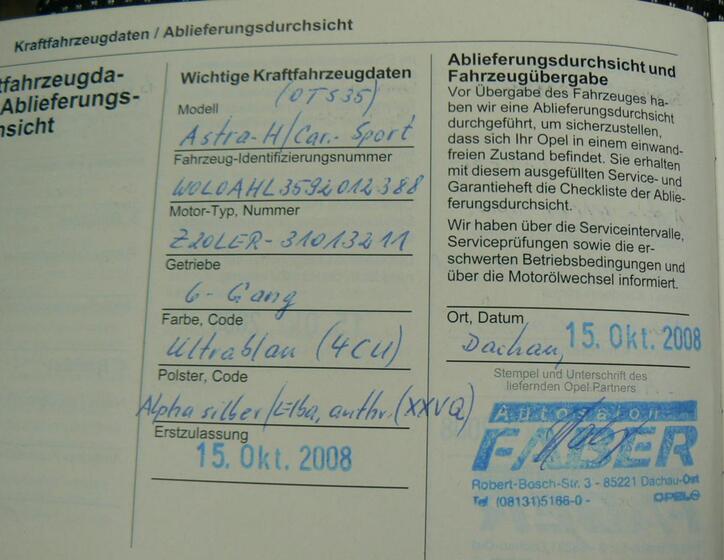 Kraftfahrzeugdaten / Ablieferungsdurchsicht
tfahrzeugda-
Ablieferungs-
hsicht
Wichtige Kraftfahrzeugdaten
(OTS35)
Modell
Astra-H/Car.- Sport
Fahrzeug-Identifizierungsnummer
W0L0AHL3592012388
Motor-Typ, Nummer
Z20LER-31013211
Getriebe
6-Gang
Farbe, Code
Ultrablau (4CU)
Polster, Code
Alpha silber/Elba, anthr. (XXVQ)
Erstzulassung
15. Okt. 2008
Ablieferungsdurchsicht und
Fahrzeugübergabe
Vor Übergabe des Fahrzeuges ha-
ben wir eine Ablieferungsdurchsicht
durchgeführt, um sicherzustellen,
dass sich Ihr Opel in einem einwand-
freien Zustand befindet. Sie erhalten
mit diesem ausgefüllten Service- und
Garantieheft die Checkliste der Ablie-
ferungsdurchsicht.
Wir haben über die Serviceintervalle,
Serviceprüfungen sowie die er-
schwerten Betriebsbedingungen und
über die Motorölwechsel informiert.
Ort, Datum
Dachau, 15. Okt. 2008
Stempel und Unterschrift des
liefernden Opel Partners
FABER
Robert-Bosch-Str. 3 - 85221 Dachau-Ost
Tel (08131)5166-0 - OPEL